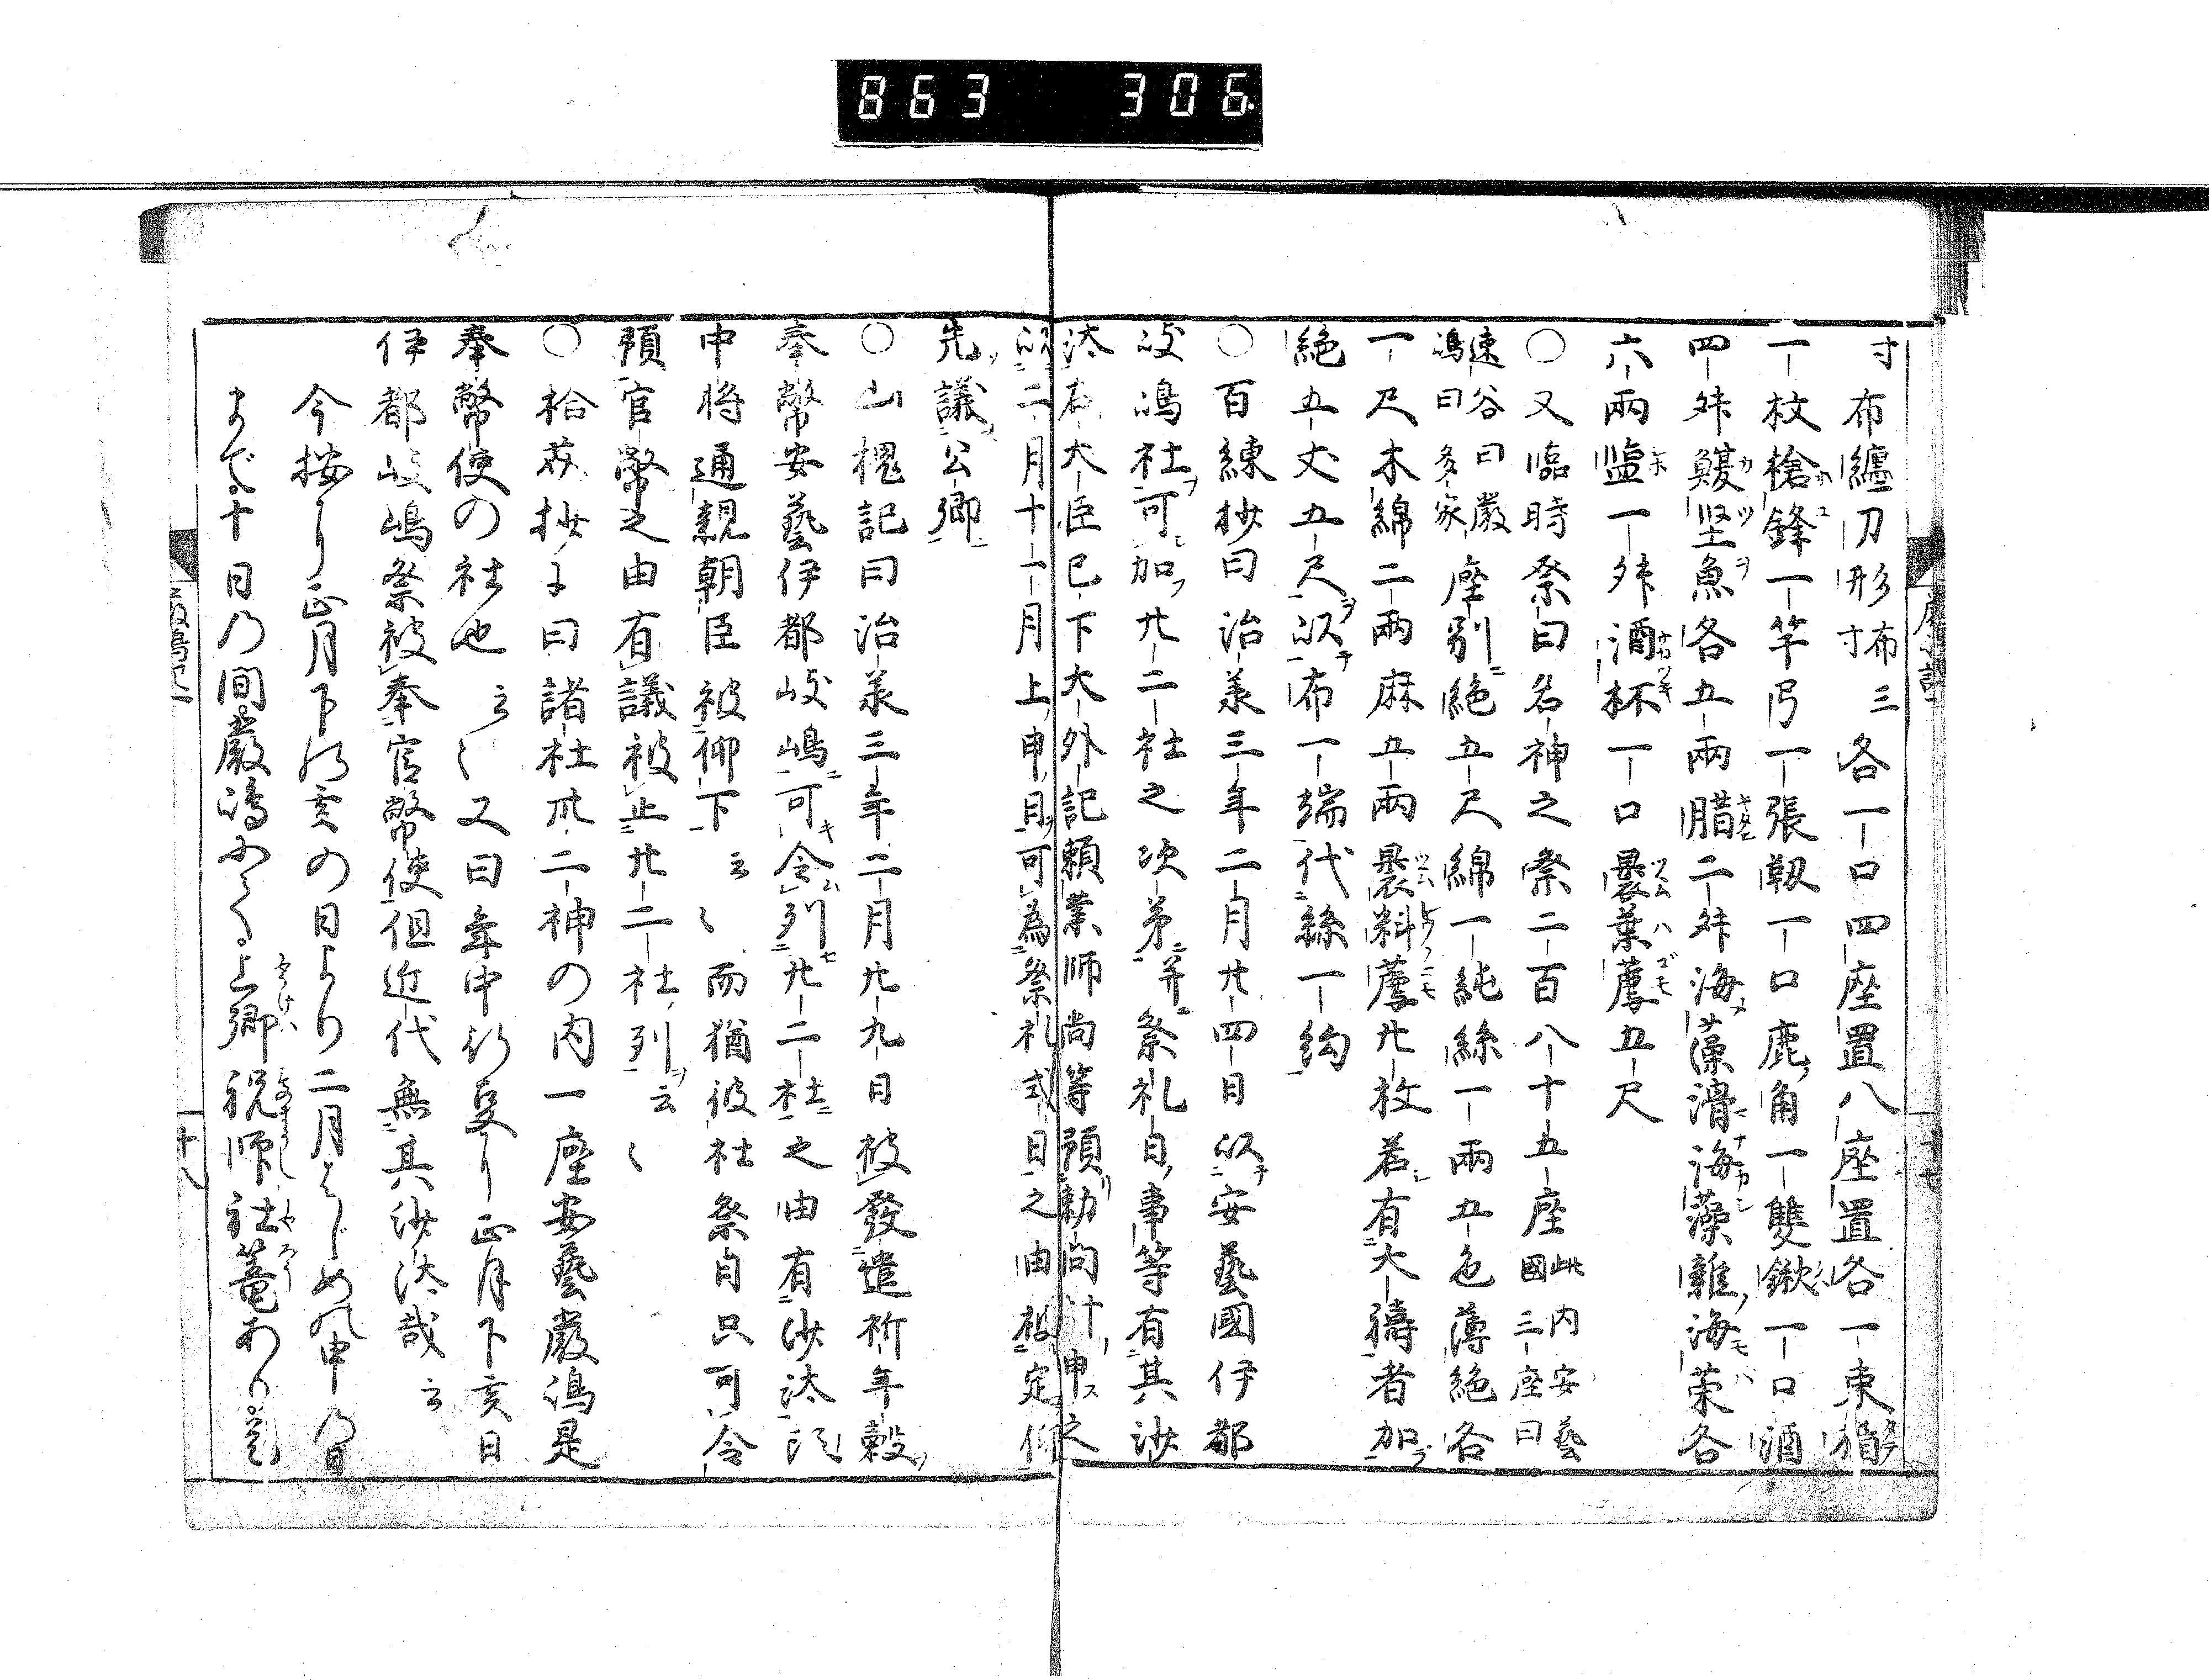 863 306
寸布纏刀形布三寸各一口四座置八座置各一束楯
一枚槍鋒一竿弓一張靫一口鹿角一雙鍬一口酒
四舛鰒堅魚各五両腊二舛海藻滑海藻雜海菜各
六両塩一舛酒杯一口褁葉薦五尺
○又臨時祭曰名神之祭二百八十五座此内安藝國三座曰
速谷曰嚴嶋曰多家座別絁五尺綿一純絲一両五色薄絁各
一尺木綿二両麻五両褁料薦廿枚若有大禱者加
絁五丈五尺以布一端代絲一絇
○百練抄曰治羕三年二月廿四日以安藝國伊都
岐嶋社可加廿二社之次第并祭礼日事等有其沙
汰右大臣已下大外記頼業師尚等預勅向計申之
以二月十一月上申日可為祭礼式日之由被定仰
先議公卿
○山槐記曰治羕三年二月廿九日被發遣祈年穀
奉幣安藝伊都岐嶋可令列廿二社之由有沙汰
中将通親朝臣被仰下云〻而猶彼社祭日只可令
預官幣之由有議被止廿二社列云〻
○拾芥抄に曰諸社卅二神の内一座安藝嚴嶋是
奉幣使の社也云〻又曰年中行叓り正月下亥日
伊都岐嶋祭被奉官幣使但近代無其沙汰哉云
今按り正月下の亥の日より二月はじめの申の日
まで十日の間嚴嶋おゐて上卿祝師社篭あり
十七
十八